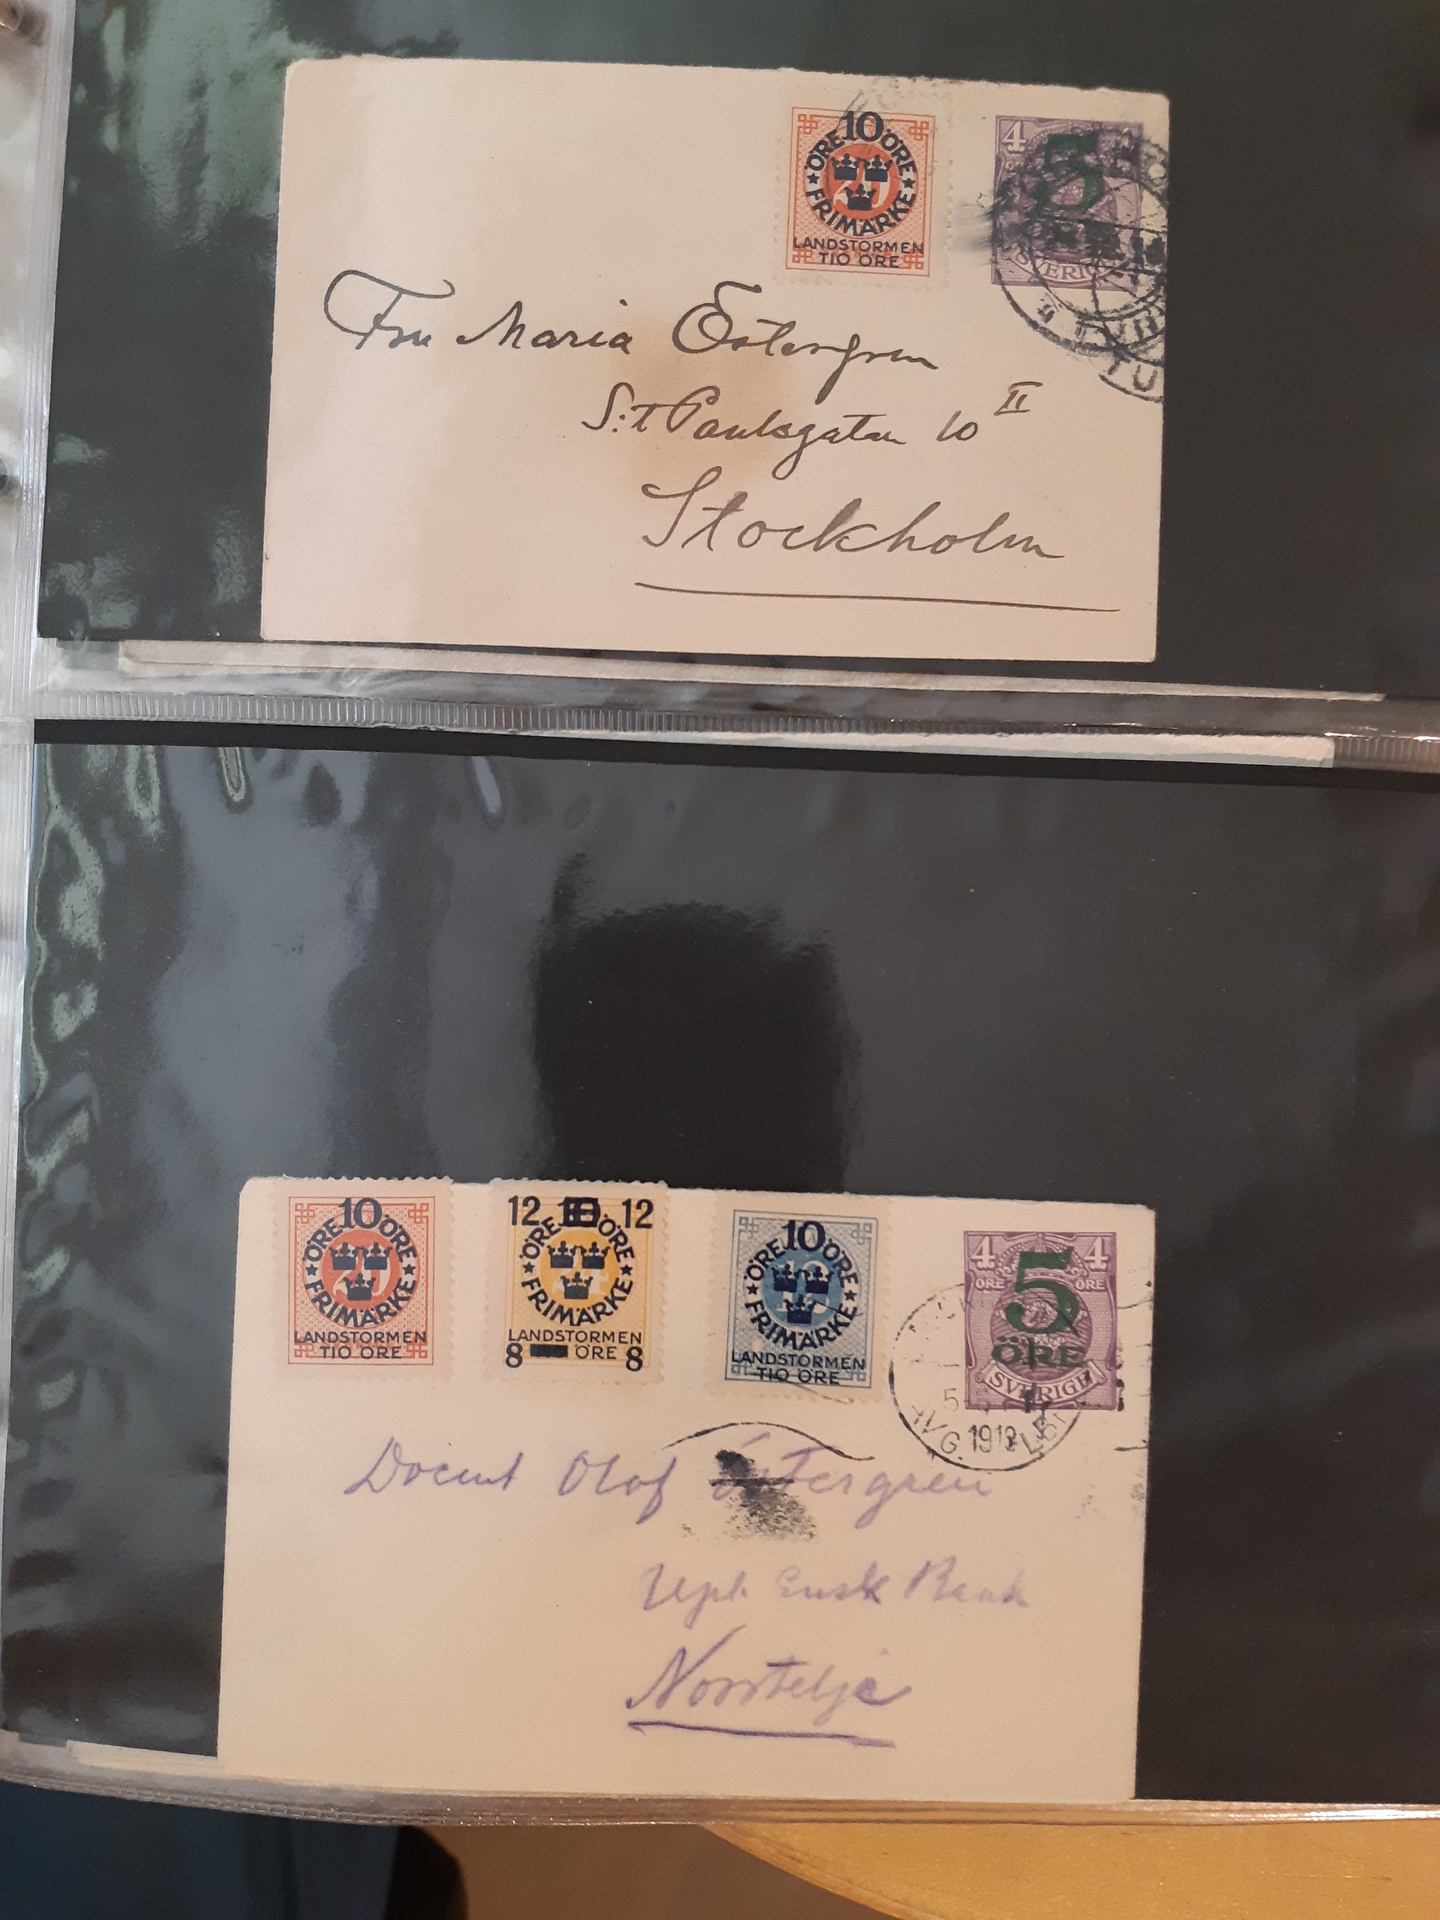 10
ÖRE ÖRE
20
FRIMÄRKE
LANDSTORMEN
TIO ÖRE
4
5
SVERIGE
TUR
Fru Maria Östergren
S:t Paulsgatan 10 II
Stockholm
10
ÖRE ÖRE
20
FRIMÄRKE
LANDSTORMEN
TIO ÖRE
12 12
ÖRE ÖRE
FRIMÄRKE
LANDSTORMEN
8 ÖRE 8
10
ÖRE ÖRE
FRIMÄRKE
LANDSTORMEN
TIO ÖRE
4 4
ÖRE ÖRE
5
ÖRE
SVERIGE
AVG. 1918
Docent Olof Östergren
Upl. Ensk Bank
Norrtelje